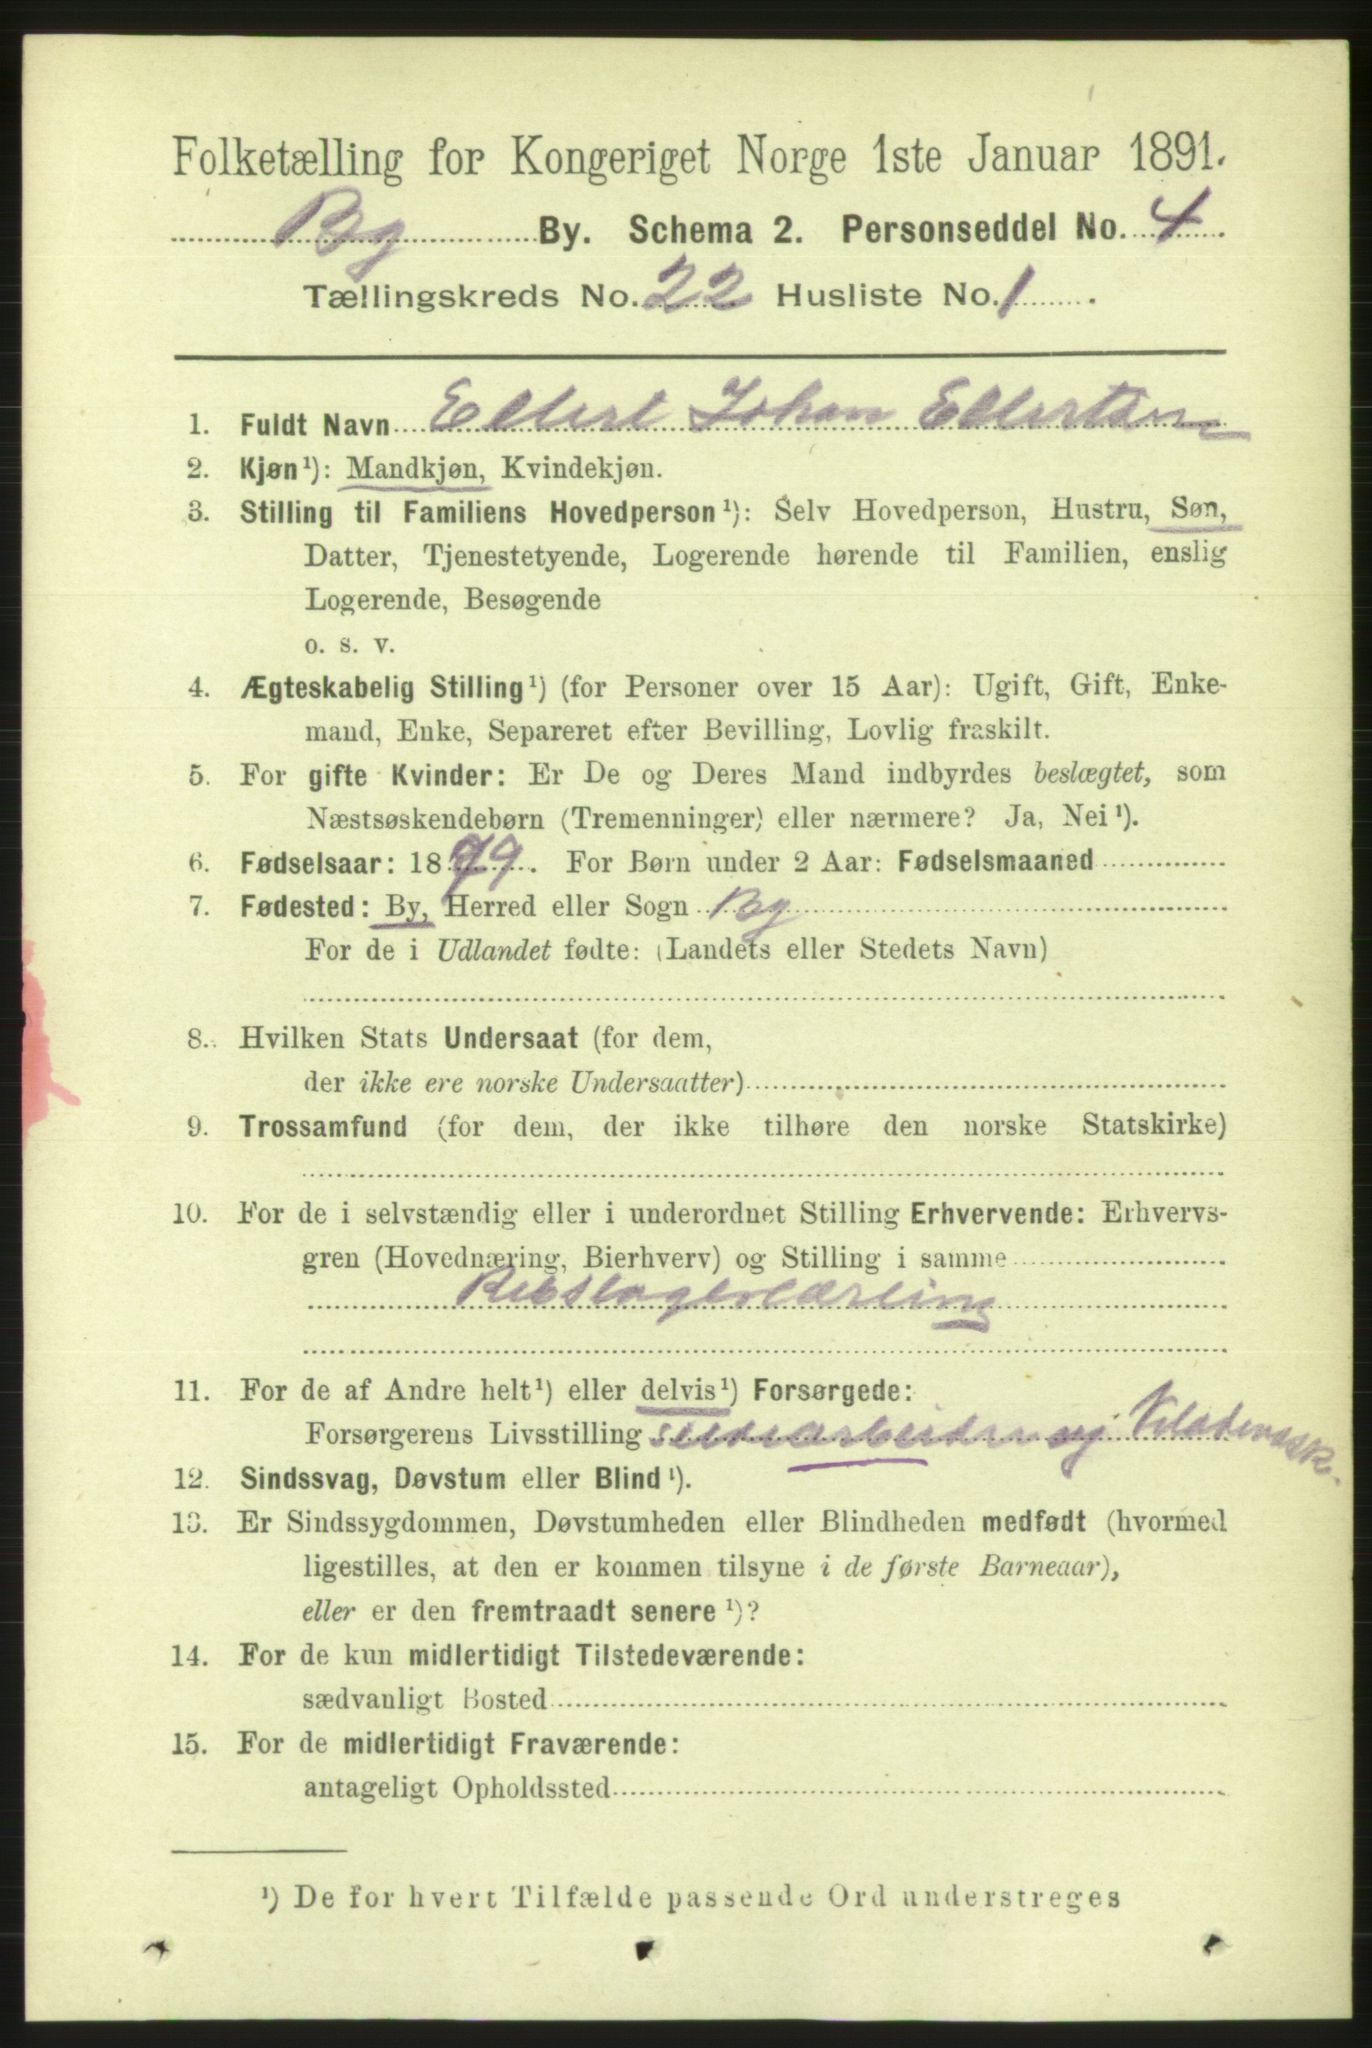 Folketælling for Kongeriget Norge 1ste Januar 1891.
Bg By. Schema 2. Personseddel No. 4.
Tællingskreds No. 22 Husliste No. 1.
1. Fuldt Navn Ellert Johan Ellertsen
2. Kjøn¹): Mandkjøn, Kvindekjøn.
3. Stilling til Familiens Hovedperson¹): Selv Hovedperson, Hustru, Søn,
Datter, Tjenestetyende, Logerende hørende til Familien, enslig
Logerende, Besøgende
o. s. v.
4. Ægteskabelig Stilling¹) (for Personer over 15 Aar): Ugift, Gift, Enke-
mand, Enke, Separeret efter Bevilling, Lovlig fraskilt.
5. For gifte Kvinder: Er De og Deres Mand indbyrdes beslægtet, som
Næstsøskendebørn (Tremenninger) eller nærmere? Ja, Nei¹).
6. Fødselsaar: 1879. For Børn under 2 Aar: Fødselsmaaned
7. Fødested: By, Herred eller Sogn Bg
For de i Udlandet fødte: (Landets eller Stedets Navn)
8. Hvilken Stats Undersaat (for dem,
der ikke ere norske Undersaatter)
9. Trossamfund (for dem, der ikke tilhøre den norske Statskirke)
10. For de i selvstændig eller i underordnet Stilling Erhvervende: Erhvervs-
gren (Hovednæring, Bierhverv) og Stilling i samme
Rebslagerlærling
11. For de af Andre helt¹) eller delvis¹) Forsørgede:
Forsørgerens Livsstilling
12. Sindssvag, Døvstum eller Blind¹).
13. Er Sindssygdommen, Døvstumheden eller Blindheden medfødt (hvormed
ligestilles, at den er kommen tilsyne i de første Barneaar),
eller er den fremtraadt senere¹)?
14. For de kun midlertidigt Tilstedeværende:
sædvanligt Bosted
15. For de midlertidigt Fraværende:
antageligt Opholdssted
¹) De for hvert Tilfælde passende Ord understreges